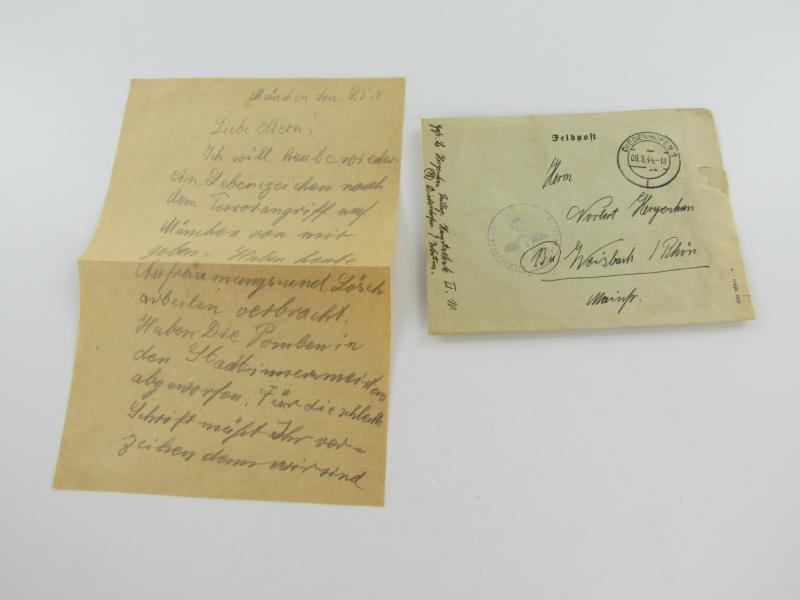 München den 25.IV.
Liebe Eltern!
Ich will heute wieder
ein Lebenszeichen nach
dem Terrorangriff auf
München von mir
geben. Haben heute
Aufräumungs und Lösch
arbeiten verbracht.
Haben Die Pomben in
den Stadtinnern
abgeworfen. Für die schlechte
Schrift müßt Ihr ver-
zeihen denn wir sind
Feldpost
DIEDENHOFEN 1
09.3.44-18
Herrn
Norbert Hergenhan
Weisbach / Rhön
Mainfr.